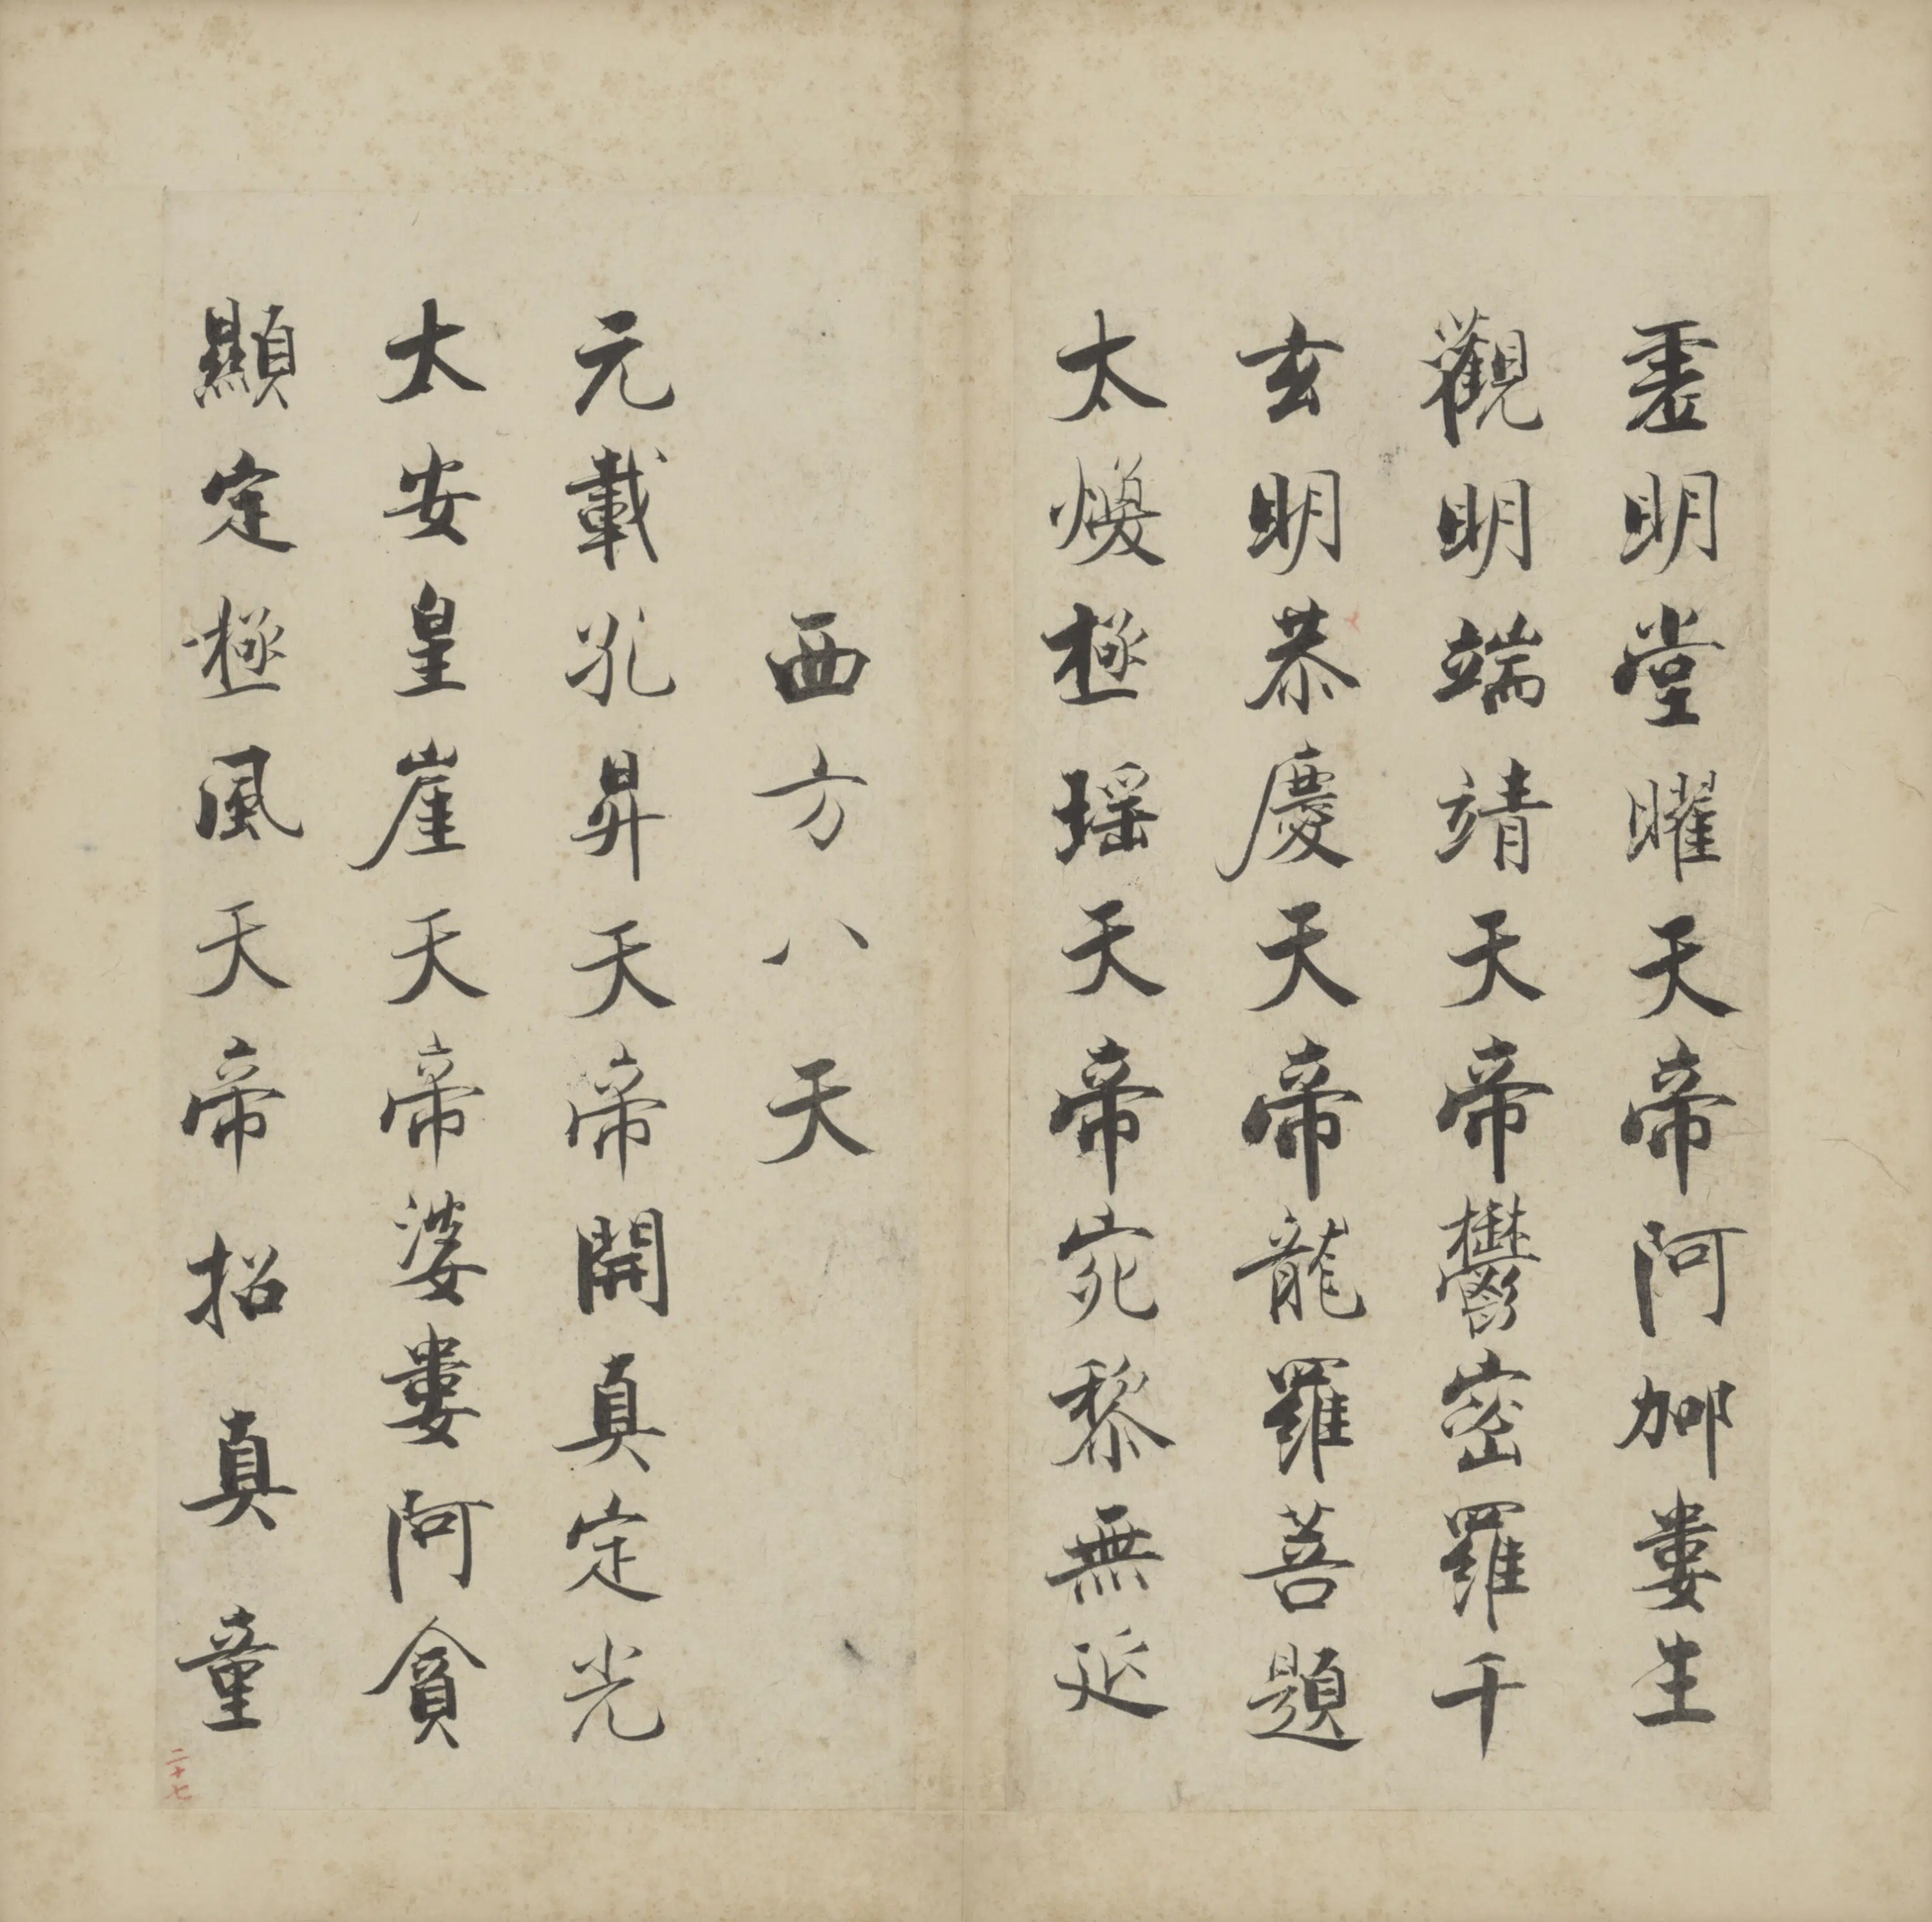 虛明堂曜天帝阿䣛婁生
觀明端靖天帝鬱密羅千
玄明恭慶天帝龍羅菩題
太煥極瑤天帝宛黎無延
西方八天
元載孔昇天帝開真定光
太安皇崖天帝婆婁阿貪
顯定極風天帝招真童
二十七